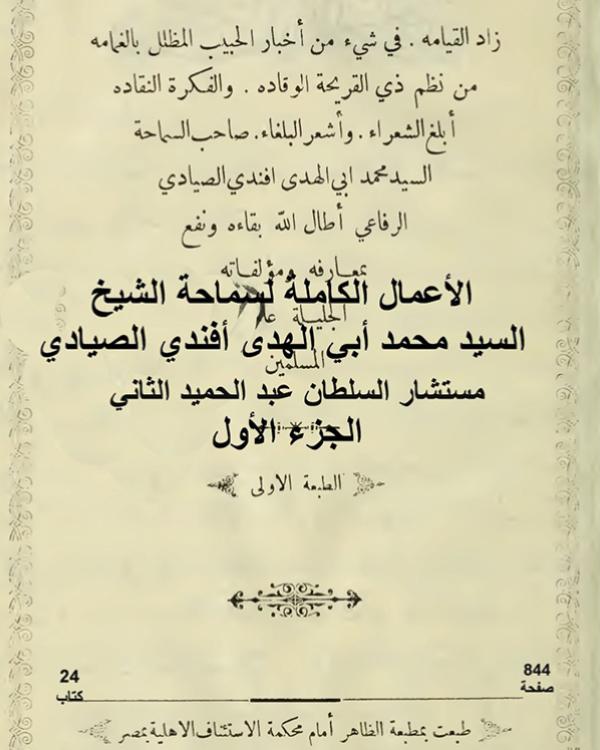 زاد القيامه . في شيء من أخبار الحبيب المظلل بالغمامه
من نظم ذي القريحة الوقاده . والفكرة النقاده
أبلغ الشعراء . وأشعر البلغاء . صاحب السماحة
السيد محمد ابي الهدى افندي الصيادي
الرفاعي أطال الله بقاءه ونفع
بمعارفه ومؤلفاته
الأعمال الكاملة لسماحة الشيخ
الجليلة
السيد محمد أبي الهدى أفندي الصيادي
المسلمين
مستشار السلطان عبد الحميد الثاني
الجزء الأول
الطبعة الاولى
844
صفحة
24
كتاب
طبعت بمطبعة الظاهر أمام محكمة الاستئناف الاهلية بمصر